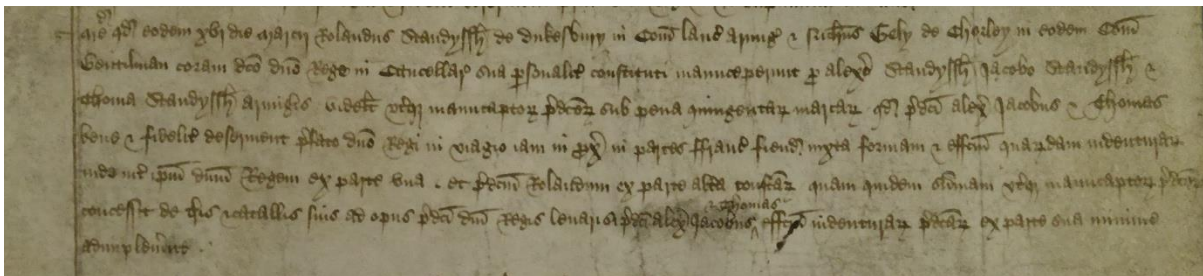 M̄d qd̄ eodem xvj die marcii Rolandus Standyssh̄ de Dukesbury in Com̄ Lanc̄ armiḡ & Ric̄us Gely de Chorley in eodem Com̄
Gentilman coram dc̄o dn̄o Rege in Cancellar̄ sua p̄sonalit̄ constituti manuceperunt p̄ alex̄o Standyssh̄ Jacobo Standyssh̄ &
Thoma Standyssh̄ armiḡis videlt̄ vt̄q̄ manucaptor̄ p̄dc̄or̄ sub pena quingentar̄ marcar̄ qd̄ p̄dc̄i alex̄ Jacobus & Thomas
bene & fidelit̄ deservient p̄fato dn̄o Regi in viagio iam in prox̄ in partes ffranc̄ fiend̄ iuxta formam & effc̄um quar̄dam indenturar̄
inde int̄ ip̄m dn̄m Regem ex parte vna . et p̄dc̄um Rolandum ex parte alt̄a confc̄ar̄ quam quidem sum̄am vt̄q̄ manucaptor̄ p̄dc̄or̄
concessit de t̄ris & catallis suis ad opus p̄dc̄i dn̄i Regis levari si p̄dc̄i alex̄ Jacobus & Thomas effc̄um indenturar̄ p̄dc̄ar̄ ex parte sua minime
adimplev̄int .